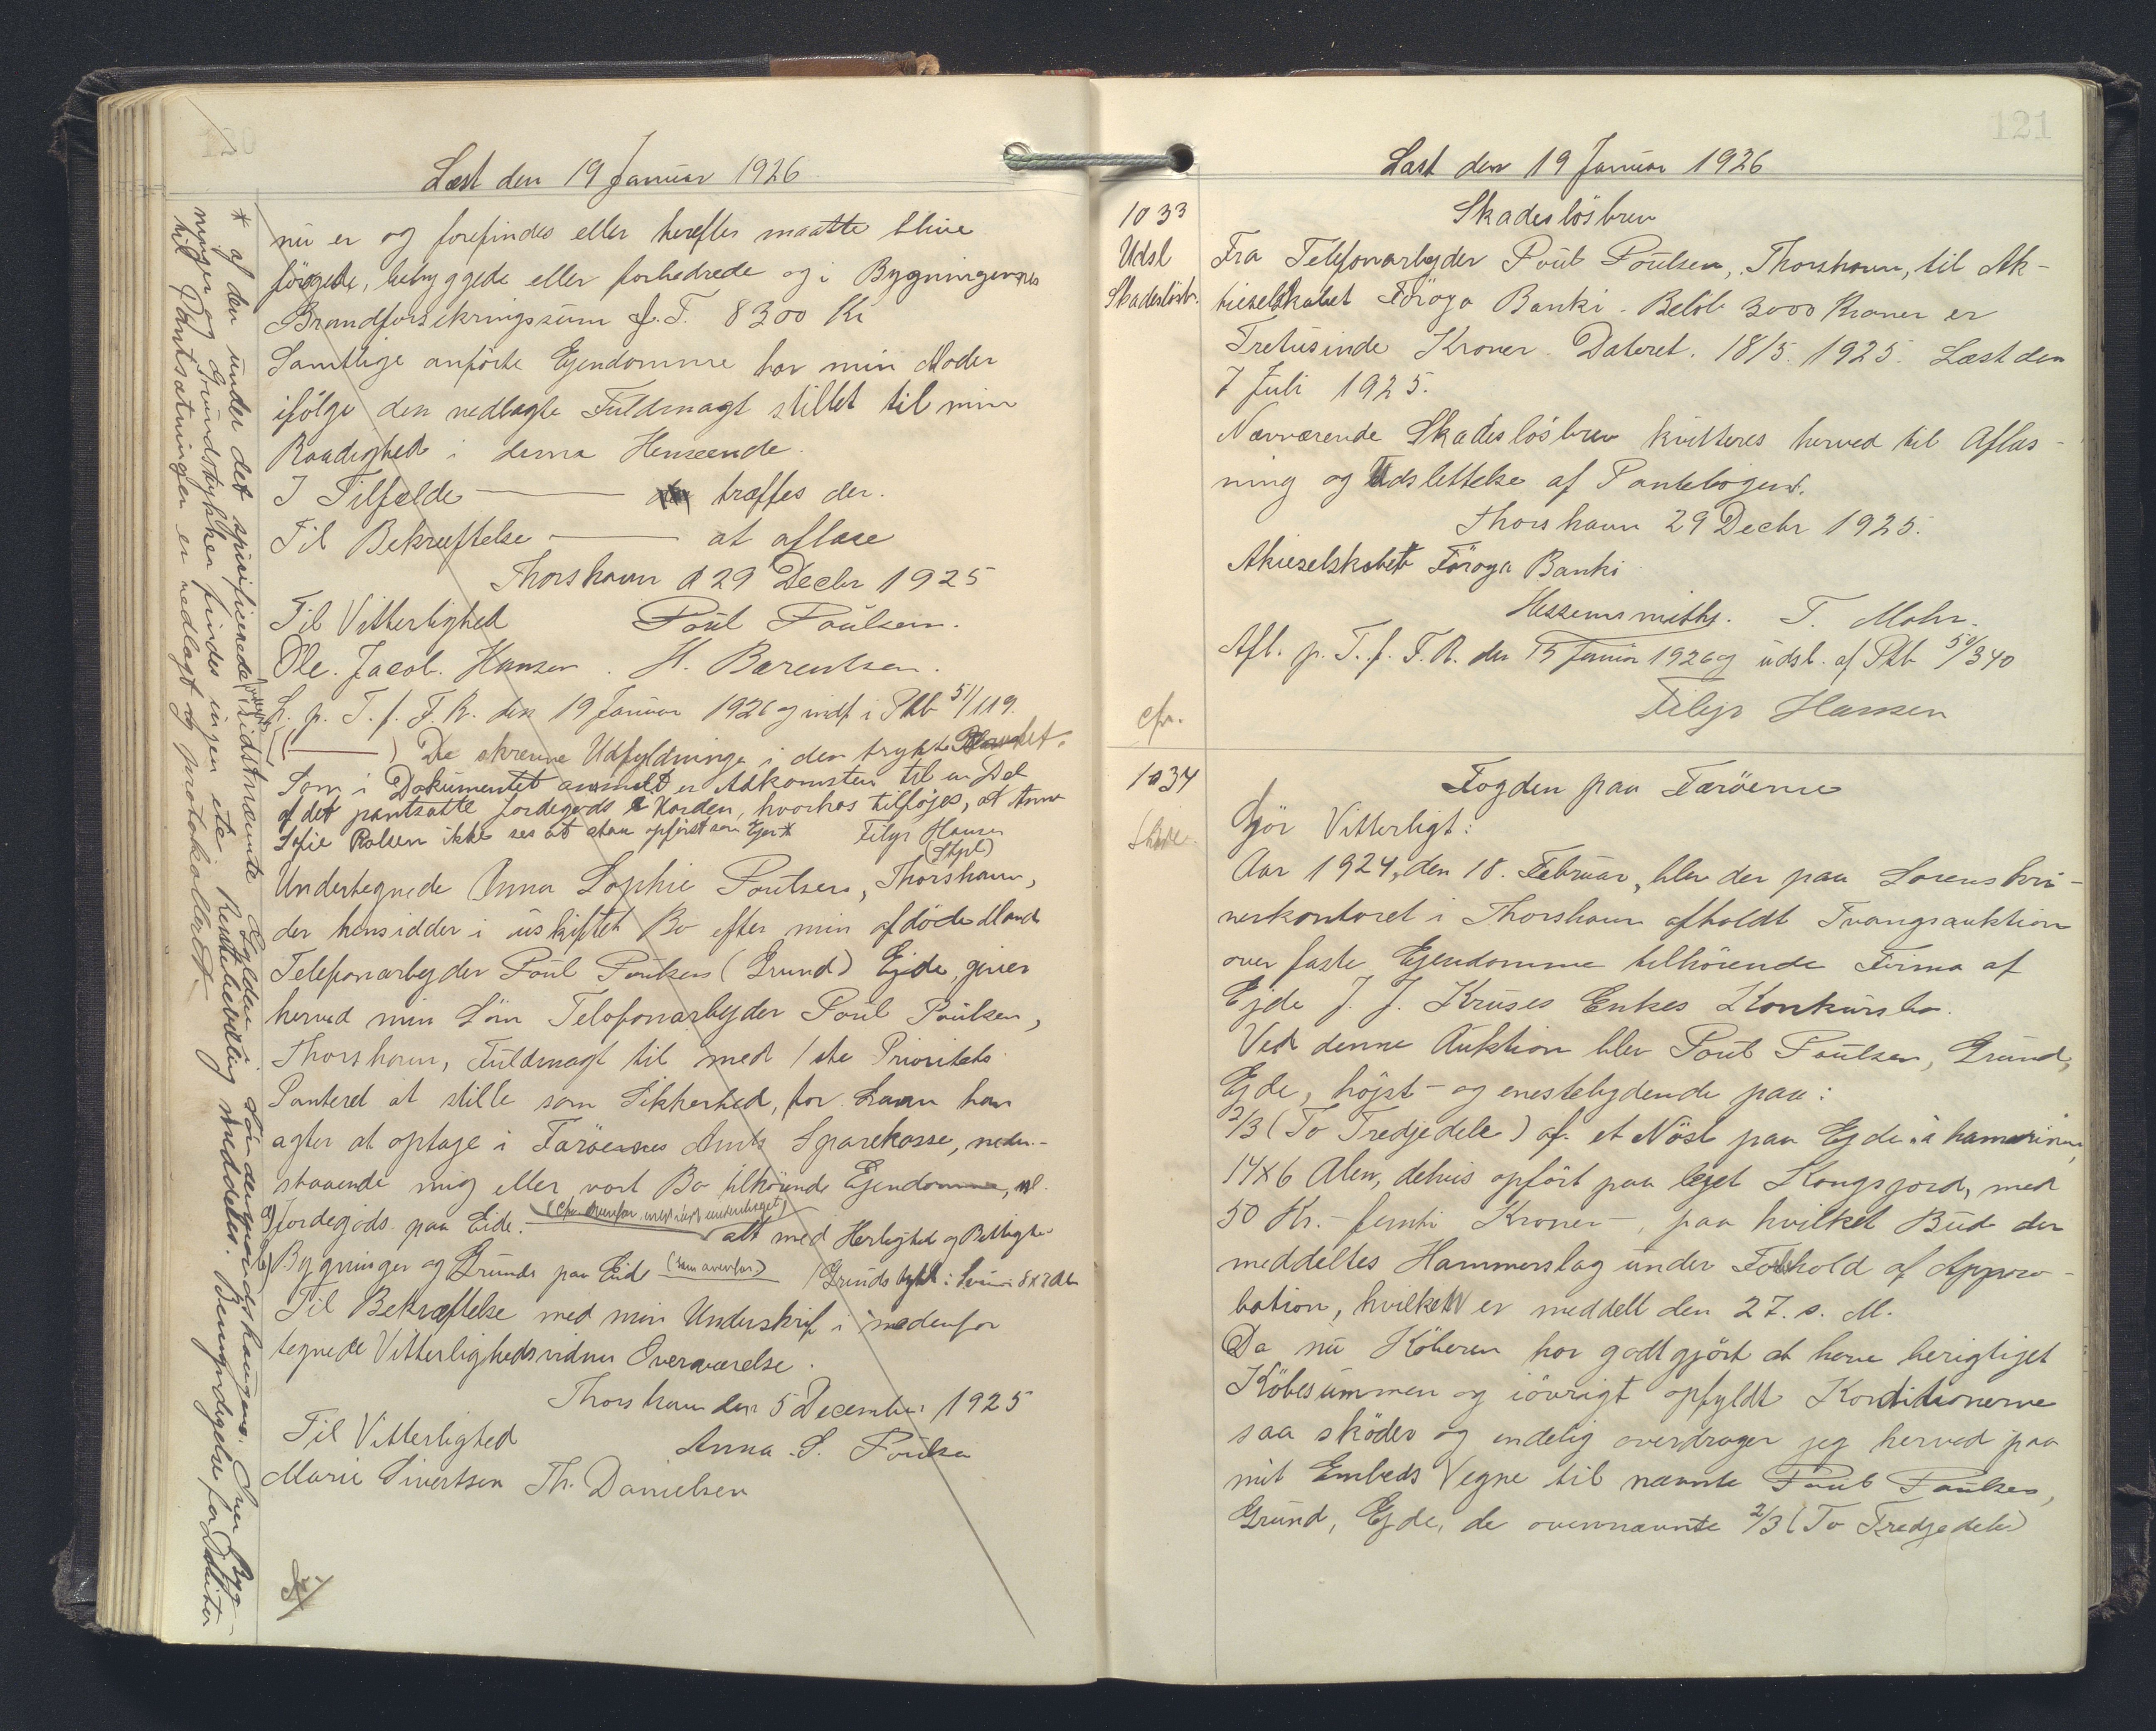 120
Læst den 19 Januar 1926
nu er og forefindes eller herefter maatte blive
forøgede, bebyggede eller forbedrede og i Bygningernes
Brandforsikringssum f. T. 8300 Kr
Samtlige anførte Ejendomme har min Moder
ifølge den nedlagte Fuldmagt stillet til min
Raadighed i denne Henseende.
I Tilfælde ——— træffes der.
Til Bekræftelse ——— at aflæse
Thorshavn d 29 Decbr 1925
Til Vitterlighed Poul Poulsen.
Ole. Jacob. Hansen. H. Barentsen.
L. p. T. f. F. R. den 19 Januar 1926 og indf i Pkb 51/119.
( ——— ) De skrevne Udfyldninger i den trykte
Som i Dokumentet anmeldt er Adkomsten til en Del
af det pantsatte Jordegods i Orden, hvorhos tilføjes, at Anna
Sofie Polsen ikke ses at staa opført som Ejer * Filip Hansen
(Stpl)
Undertegnede Anna Sophie Poulsen, Thorshavn,
der hensidder i uskiftet Bo efter min afdøde Mand
Telefonarbejder Poul Poulsen (Grund) Ejde, giver
herved min Søn Telefonarbejder Poul Poulsen,
Thorshavn, Fuldmagt til med 1ste Prioritets
Panteret at stille som Sikkerhed, for Laan han
agter at optage i Færøernes Amts Sparekasse, neden-
staaende mig eller vort Bo tilhørende Ejendomme, nl.
a) Jordegods paa Eide. (Cfr. ovenfor ) alt med Herlighed og Rettighed
b) Bygninger og Grunde paa Eide (som ovenfor) / Grundstykket: 8x7 Al
Til Bekræftelse med min Underskrif i nedenfor
tegnede Vitterlighedsvidners Overværelse.
Thorshavn den 5 December 1925
Til Vitterlighed Anna S. Poulsen
Marie Sivertsen Th. Danielsen
* af den under det spisificerede Gylden Søndergaardshaugens. Over Byg-
ninger og Grundstykker findes ingen ete Rentebevilling meddelt. Bemyndigelse for Datter
til Pantsætningen er nedlagt og protokolleret.
121
Læst den 19 Januar 1926
1033
Udsl
Skadesløsb.
Skadesløsbrev
Fra Telefonarbejder Poul Poulsen, Thorshavn, til Ak-
tieselskabet Föroya Banki. Beløb 3000 Kroner er
Tretusinde Kroner. Dateret. 18/5. 1925. Læst den
7 Juli 1925.
Nærværende Skadesløsbrev kvitteres herved til Aflæs-
ning og Udslettelse af Pantebogen.
Thorshavn 29 Decbr 1925.
Akieselskabet Föroya Banki
Hessemsmiths. T. Mohr.
Afl. p. T. f. F. R. den 15 Januar 1926 og udsl. af Pkb 50/340
Filip Hansen
cfr.
1034
Fogden paa Færøerne
Gjør Vitterligt:
Aar 1924, den 18. Februar, blev der paa Sorenskri-
verkontoret i Thorshavn afholdt Tvangsauktion
over faste Ejendomme tilhørende Firma af
Ejde J. J. Kruses Enkes Konkursbo.
Ved denne Auktion blev Poul Poulsen, Grund,
Ejde, højst- og enestebydende paa:
2/3 (To Tredjedele) af et Nøst paa Ejde á hamrinum,
14x6 Alen, delvis opført paa lejet Kongsjord, med
50 Kr. - femti Kroner -, paa hvilket Bud der
meddeltes Hammerslag under Forbehold af Appro-
bation, hvilket er meddelt den 27. s. M.
Da nu Køberen har godtgjört at have berigtiget
Købesummen og iøvrigt opfyldt Konditionerne
saa skøder og endelig overdrager jeg herved paa
mit Embeds Vegne til nævnte Poul Poulsen,
Grund, Ejde, de ovennævnte 2/3 (To Tredjedele)